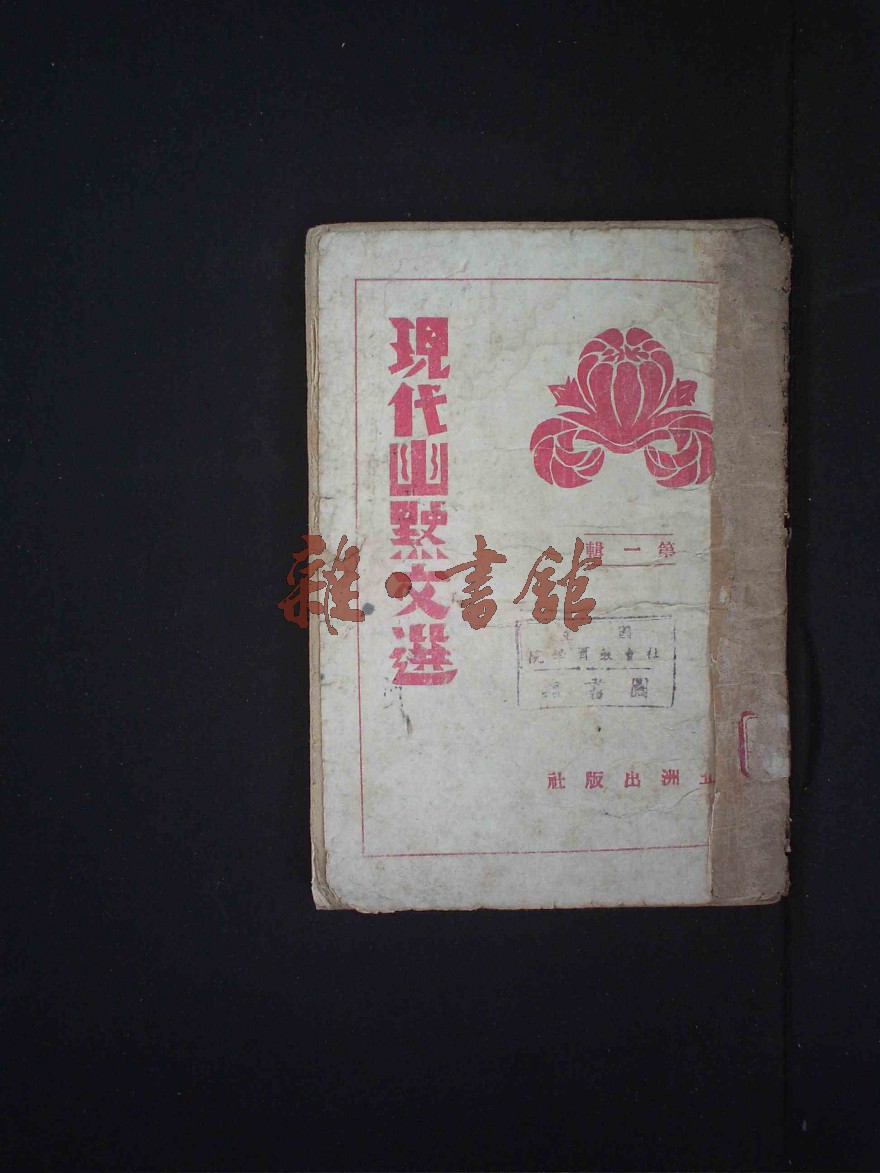 現代幽默文選
第一輯
國立
社會教育學院
圖書館
五洲出版社
雜·書館